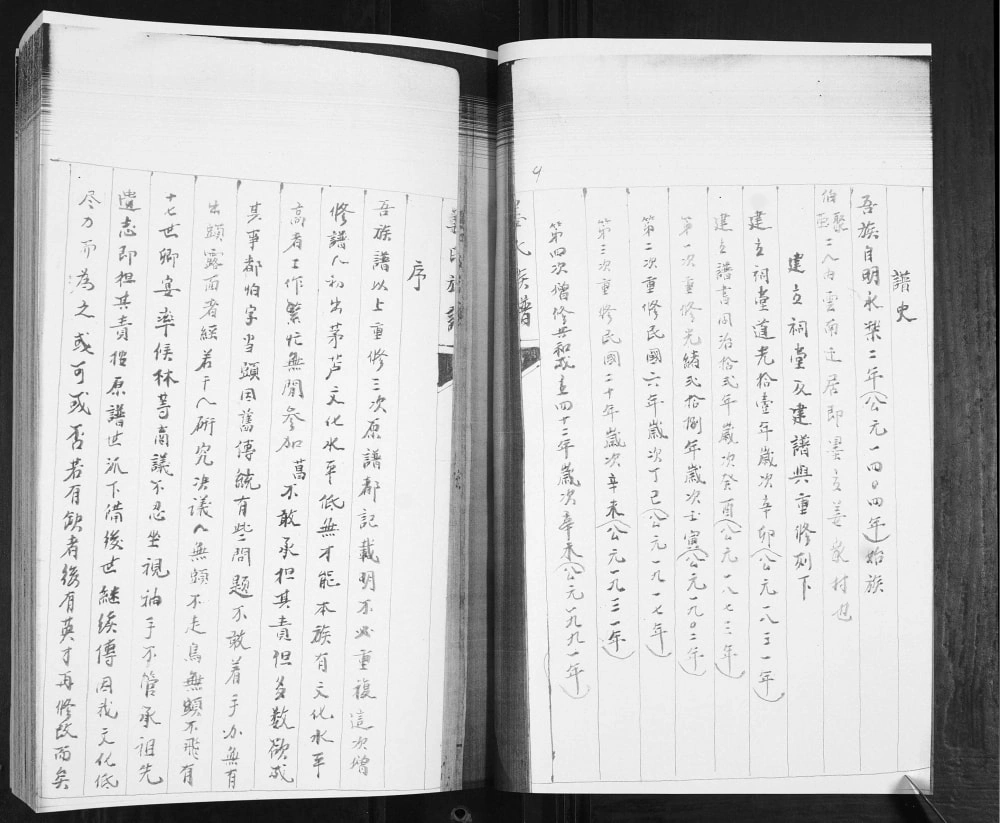 譜史
吾族自明永樂二年（公元一四0四年）始族
伯聚 二人由雲南迁居即墨立姜家村也
建立祠堂及建譜與重修列下
建立祠堂道光拾壹年歲次辛卯（公元一八三一年）
建立譜書同治拾弍年歲次癸酉（公元一八七三年）
第一次重修光緒弍拾捌年歲次壬寅（公元一九0二年）
第二次重修民國六年歲次丁己（公元一九一七年）
第三次重修民國二十年歲次辛未（公元一九三一年）
第四次增修共和成立四十二年歲次辛未（公元一九九一年）
4
姜氏族譜
序
吾族譜以上重修三次原譜都記載明不必重複這次增
修譜人初出茅芦文化水平低無才能本族有文化水平
高者工作繁忙無閒參加 不敢承担其責但多數欲成
其事都怕字当頭因舊傳統有些問題不敢着手办無有
出頭露面者經若干人研究决議人無頭不走鳥無頭不飛有
十七世卿宴率候林等商議不忍坐視袖手不管承祖先
遺志即担其責按原譜世派下備後世継续傳因我文化低
尽力而為之或可或否若有缺者後有英才再修改而矣